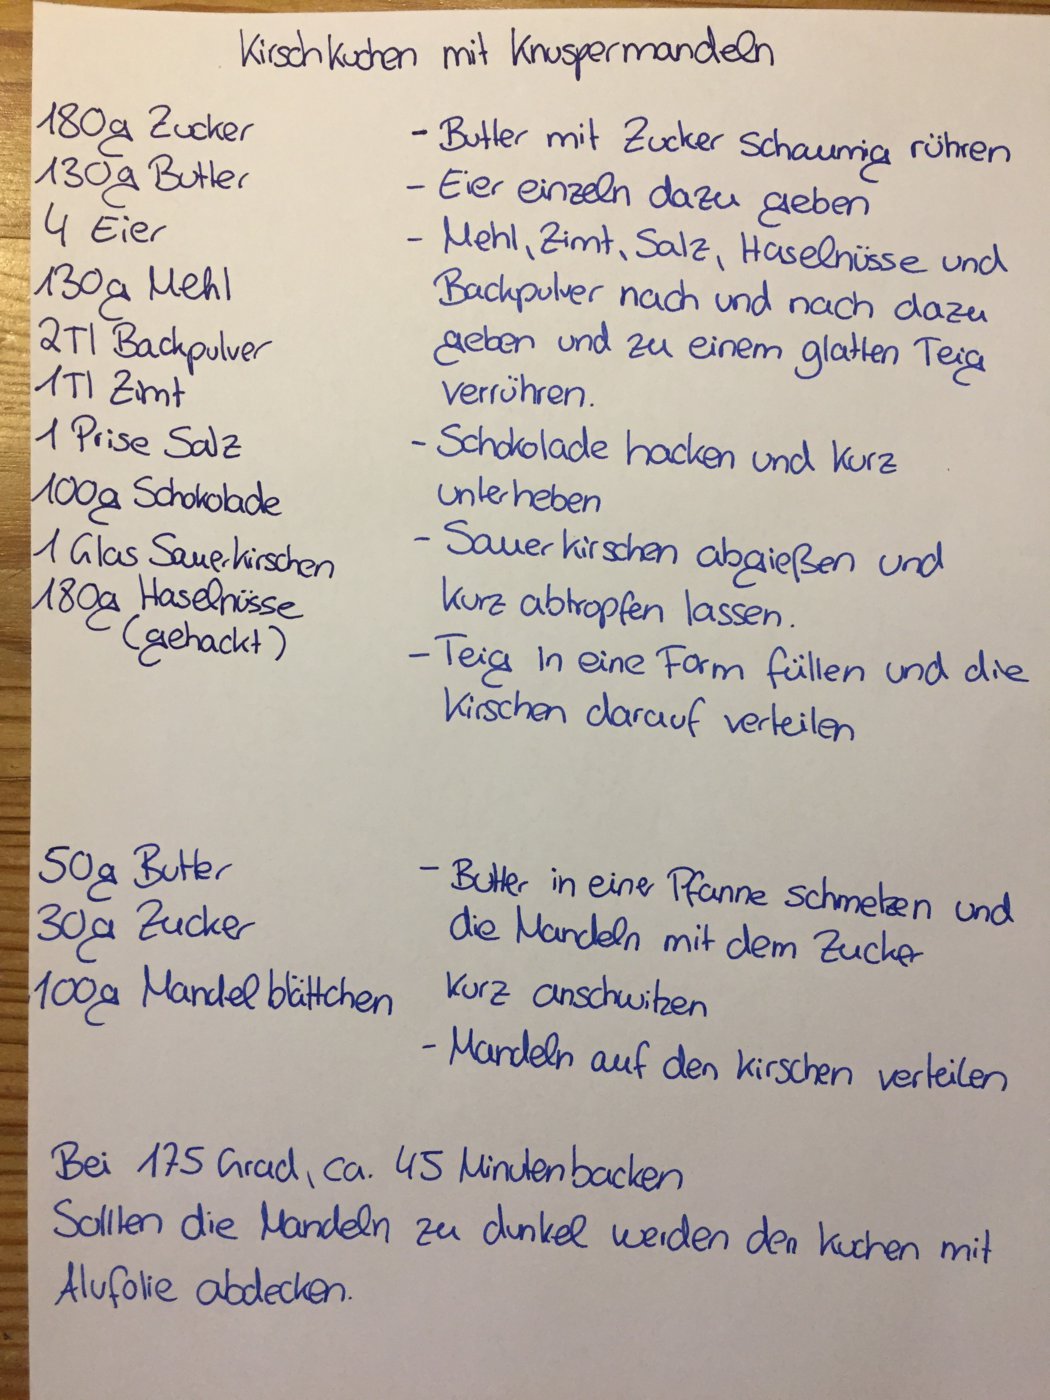 Kirschkuchen mit Knuspermandeln
180g Zucker
130g Butter
4 Eier
130g Mehl
2Tl Backpulver
1Tl Zimt
1 Prise Salz
100g Schokolade
1 Glas Sauerkirschen
180g Haselnüsse
(gehackt)
- Butter mit Zucker schaumig rühren
- Eier einzeln dazu geben
- Mehl, Zimt, Salz, Haselnüsse und
Backpulver nach und nach dazu
geben und zu einem glatten Teig
verrühren.
- Schokolade hacken und kurz
unterheben
- Sauerkirschen abgießen und
kurz abtropfen lassen.
- Teig in eine Form füllen und die
Kirschen darauf verteilen
50g Butter
30g Zucker
100g Mandelblättchen
- Butter in einer Pfanne schmelzen und
die Mandeln mit dem Zucker
kurz anschwitzen
- Mandeln auf den Kirschen verteilen
Bei 175 Grad, ca. 45 Minuten backen
Sollten die Mandeln zu dunkel werden den Kuchen mit
Alufolie abdecken.